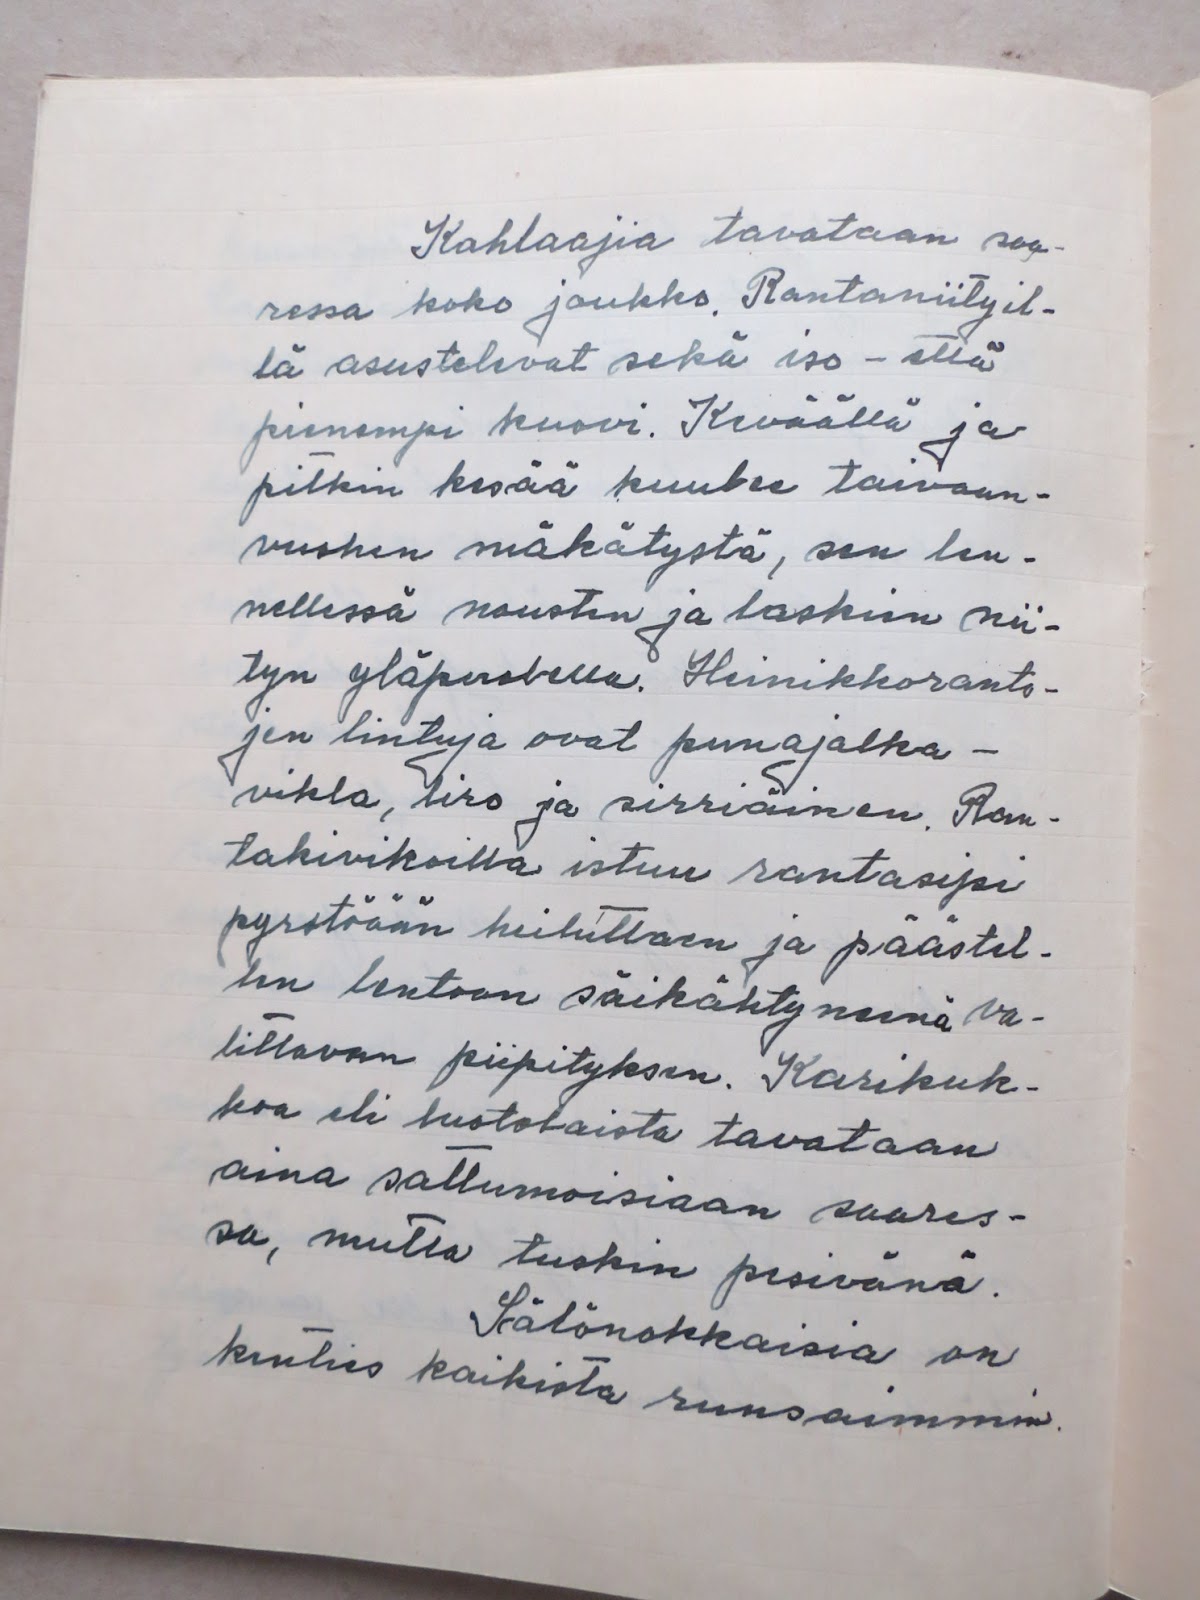 Kahlaajia tavataan saa-
ressa koko joukko. Rantaniityil-
lä asustelevat sekä iso - että
pienempi kuovi. Keväällä ja
pitkin kesää kuulee taivaan-
vuohen mäkätystä, sen len-
nellessä nousten ja laskien nii-
tyn yläpuolella. Heinikkoranto-
jen lintuja ovat punajalka -
vikla, liro ja sirriäinen. Ran-
takivikoilla istuu rantasipi
pyrstöään heiluttaen ja päästel-
len lentoon säikähtyneenä va-
littavan piipityksen. Karikuk-
koa eli luotolaista tavataan
aina sattumoisiaan saares-
sa, mutta tuskin pesivänä.
Sälönokkaisia on
kenties kaikista runsaimmin.